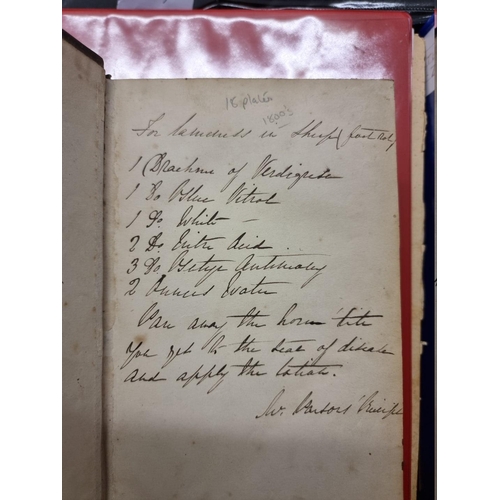 18 plates
1800's
For lameness in Sheep (foot rot)
1 Drachme of Verdigrese
1 Do Blue Vitrol
1 Do White —
2 Do Nitre Acid ..
3 Do Antimony
2 Ounces Water
Pare away the horn till
you get to the seat of disease
and apply the lotion.
Mr